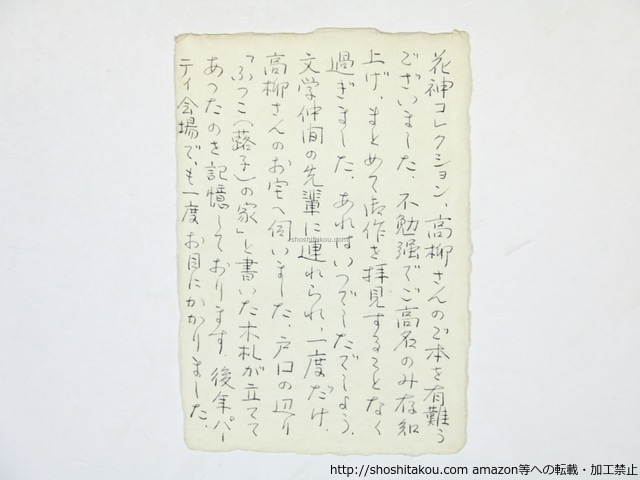 花神コレクション、高柳さんのご本を有難う
ございました。不勉強でご高名のみ存知
上げ、まとめて御作を拝見することなく
過ぎました。あれはいつでしたでしょう。
文学仲間の先輩に連れられ、一度だけ、
高柳さんのお宅へ伺いました。戸口の辺り
「ふっこ(蕗子)の家」と書いた木札が立てて
あったのを記憶しております。後年パー
ティ会場で、も一度お目にかかりました。
shoshitakou.com
http://shoshitakou.com amazon等への転載・加工禁止